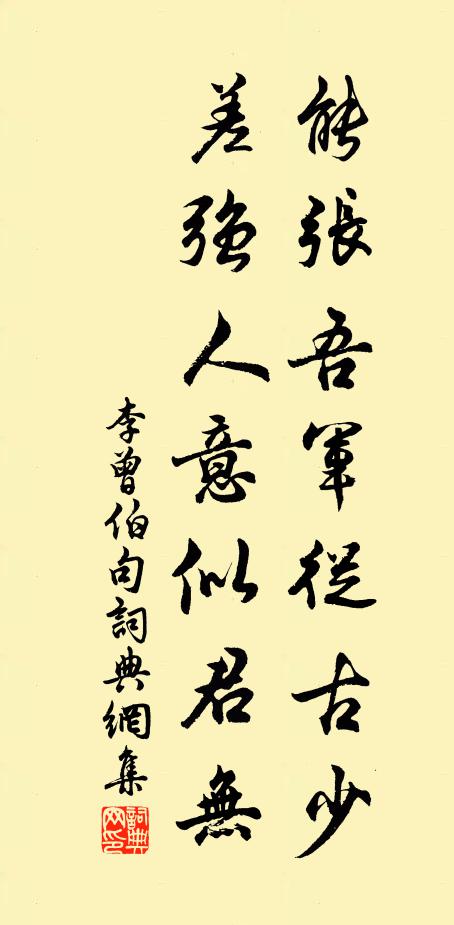 能張吾軍從古少
差強人意似君無
李曾伯句詞典網集
詞典網印